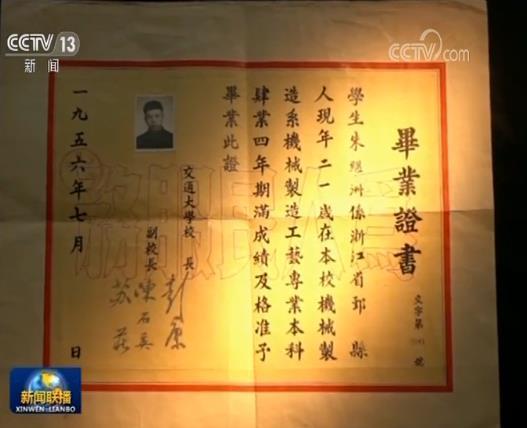 CCTV 13
新闻
CCTV.com
畢業證書
文字第 號
學生朱继洲係浙江省鄞縣
人現年二一歲在本校機械製
造系機械製造工藝專業本科
肄業四年期滿成績及格准予
畢業此證
交通大學校長 彭康
副校長 陳石英
苏莊
一九五六年七月 日
為人民服務
新闻联播
XINWEN LIANBO